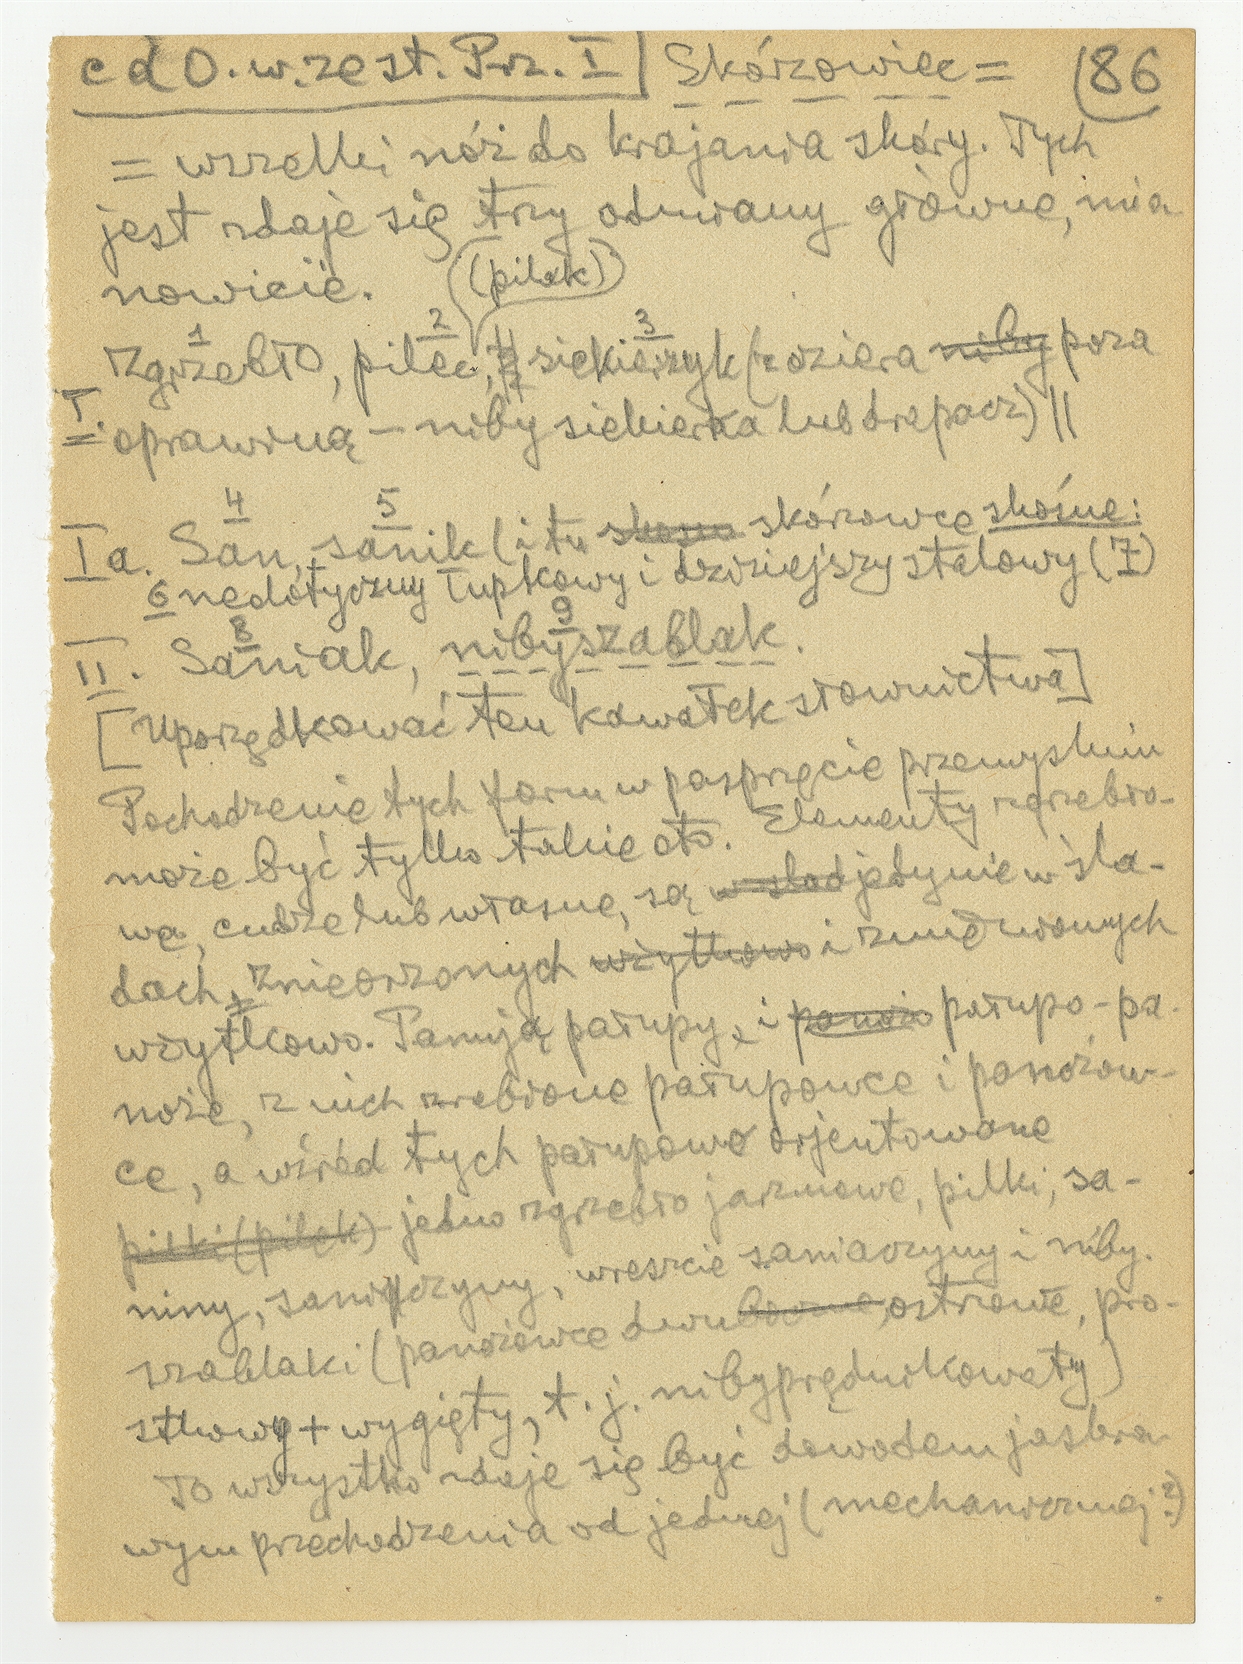 cd O. w. zest. Prz. I | Skórzowiec = (86
= wszelki nóż do krajania skóry. Tych
jest zdaje się trzy odmiany główne, mia-
nowicie. (pilak)
1 2 3
zgrzebło, pilec, siekierzyk (ździera niby poza
I. oprawiną — niby siekierka lub drapacz) ||
4 5
Ia. San, sanik (i tu skórzowce skośne:
6 nedotyczny łupkowy i dzisiejszy stalowy (7)
8 9
II. Saniak, nibyszablak.
[Uporządkować ten kawałek słownictwa]
Pochodzenie tych form w pasprzęcie przemyskim
może być tylko takie oto. Elementy zgrzebło-
we, cudze lub własne, są w slad jedynie w śla-
dach, znieorzonych użytkowo i zmełwionych
użytkowo. Panują pałupy, i panoże pałupo-pa-
noże, z nich zrobione pałupowce i panożow-
ce, a wśród tych pałupowo orjentowane
piłki (pilek) jedno zgrzebło jarzmowe, pilki, sa-
niny, saniczyny, wreszcie saniaczyny i niby-
szablaki (panożowce dwubocne, ostrzowe, pro-
stkowy + wygięty, t. j. nibyprądnikowaty)
To wszystko zdaje się być dowodem jaskra-
wym przechodzenia od jednej (mechanicznej?)